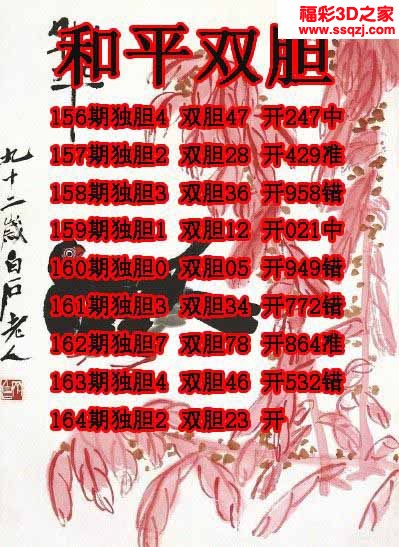 福彩3D之家
www.ssqzj.com
和平双胆
156期独胆4 双胆47 开247中
157期独胆2 双胆28 开429准
158期独胆3 双胆36 开958错
159期独胆1 双胆12 开021中
160期独胆0 双胆05 开949错
161期独胆3 双胆34 开772错
162期独胆7 双胆78 开864准
163期独胆4 双胆46 开532错
164期独胆2 双胆23 开
九十二岁白石老人